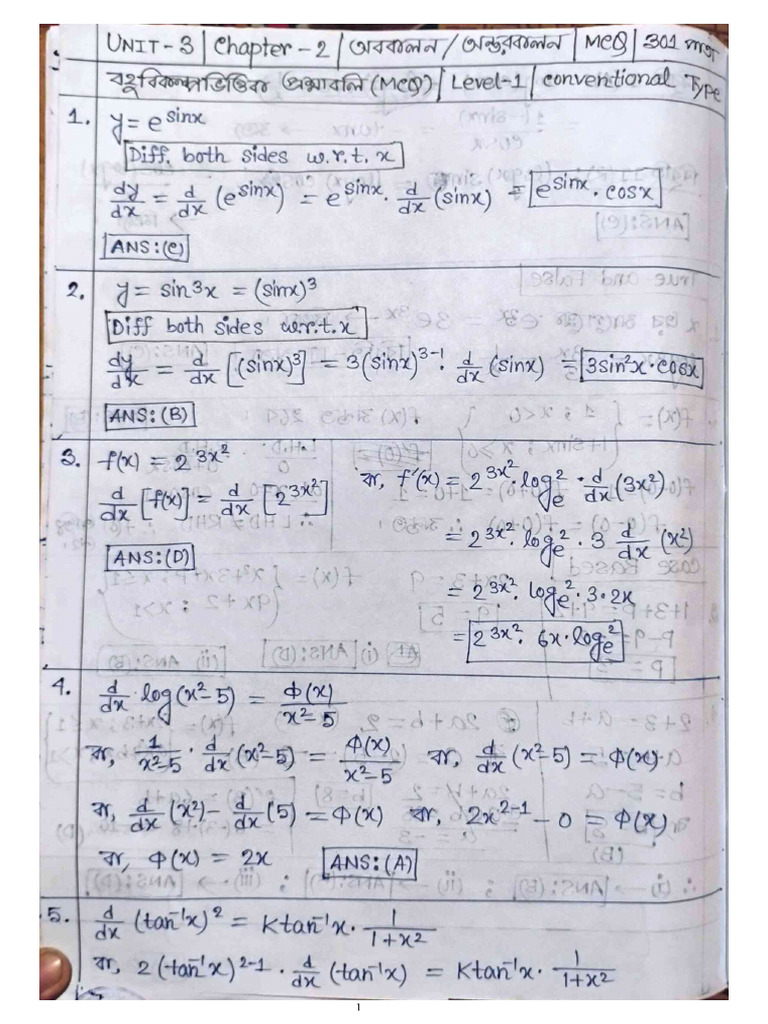 UNIT-3 | Chapter-2 | অবকলন / অন্তরকলন | MCQ | 301 পাতা
বহুবিকল্পভিত্তিক প্রশ্নাবলি (MCQ) | Level-1 | conventional Type
1. y = e^sinx
Diff. both sides w.r.t. x
dy/dx = d/dx (e^sinx) = e^sinx · d/dx (sinx) = e^sinx · cosx
ANS:(C)
2. y = sin³x = (sinx)³
Diff both sides w.r.t. x
dy/dx = d/dx [(sinx)³] = 3(sinx)^3-1 · d/dx (sinx) = 3sin²x · cosx
ANS:(B)
3. f(x) = 2^3x²
d/dx [f(x)] = d/dx [2^3x²]
ANS:(D)
বা, f'(x) = 2^3x² · log_e^2 · d/dx (3x²)
= 2^3x² · log_e^2 · 3 d/dx (x²)
= 2^3x² · log_e^2 · 3 · 2x
= 2^3x² · 6x · log_e^2
4. d/dx · log(x²-5) = Φ(x)/x²-5
বা, 1/x²-5 · d/dx (x²-5) = Φ(x)/x²-5 বা, d/dx (x²-5) = Φ(x)
বা, d/dx (x²) - d/dx (5) = Φ(x) বা, 2x^2-1 - 0 = Φ(x)
বা, Φ(x) = 2x ANS:(A)
5. d/dx (tan⁻¹x)² = K tan⁻¹x · 1/1+x²
বা, 2(tan⁻¹x)^2-1 · d/dx (tan⁻¹x) = K tan⁻¹x · 1/1+x²
1